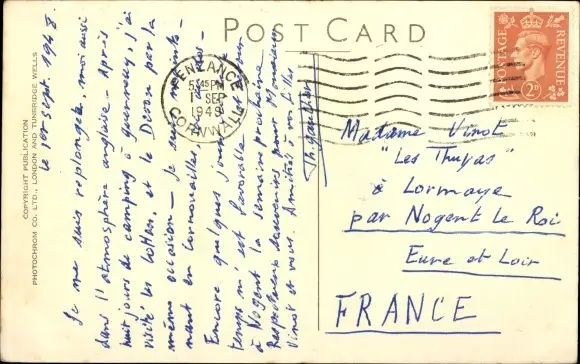 POST CARD
COPYRIGHT PUBLICATION
PHOTOCHROM CO. LTD., LONDON AND TUNBRIDGE WELLS
POSTAGE
REVENUE
2D
PENZANCE
5 45 PM
1 SEP
1948
CORNWALL
le 1er sept. 1948.
Je me suis replongée, moi aussi
dans l'atmosphère anglaise - Après
huit jours de camping à j'ai
visité les et le Devon par la
même occasion - Je suis
nant en Cornouailles
Encore quelques jours
temps m'est favorable
à Nogent la semaine prochaine
Respectueux pour Monsieur
Vinot et vous. Amitiés à vos filles.
Madame Vinot
"Les Thuyas"
à Lormaye
par Nogent le Roi
Eure et Loir
FRANCE